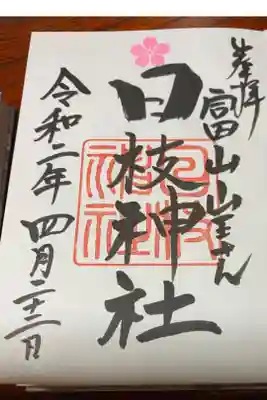 奉拝
富山山王さん
日枝神社
日枝
神社
令和二年四月二十二日